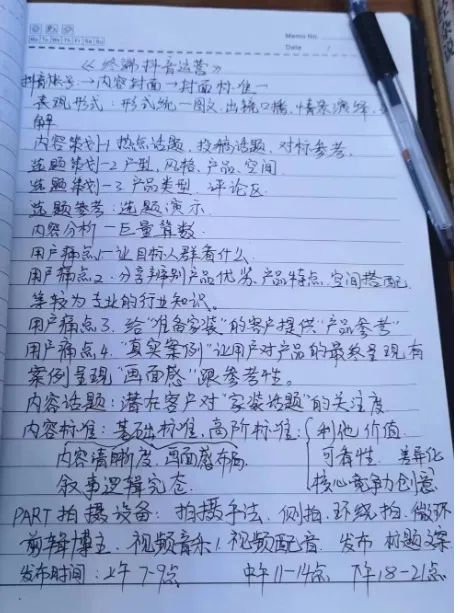 Memo No.
Mo Tu We Th Fr Sa Su
Date /
《终端抖音运营》
抖音帐号→内容封面→封面标准一
表现形式:形式统一图文,出镜口播,情景演绎,
解
内容策划-1 热点话题,投稿话题,对标参考,
选题策划-2 户型,风格,产品,空间
选题策划-3 产品类型,评论区
选题参考:选题演示
内容分析-巨量算数
用户痛点1-让目标人群看什么
用户痛点2.分享辨别产品优劣,产品特点,空间搭配,
等较为专业的行业知识。
用户痛点3.给"准备家装"的客户提供"产品参考"
用户痛点4."真实案例"让用户对产品的最终呈现有
案例呈现"画面感"跟参考性。
内容话题:潜在客户对"家装话题"的关注度
内容标准:基础标准,高阶标准:利他 价值
内容清晰度,画面感布局 可看性. 差异化
叙事逻辑完态 核心竞争力创意
PART拍摄设备:拍摄手法,侧拍,环绕拍,微环
剪辑博主,视频音乐,视频配音.发布 标题文案
发布时间:上午7-9点 中午11-14点 下午18-21点